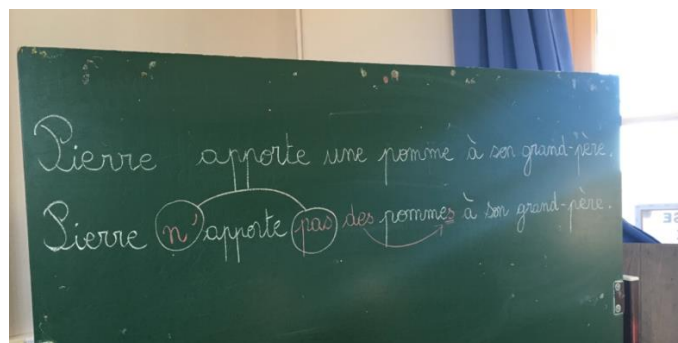 Pierre apporte une pomme à son grand-père.
Pierre n'apporte pas des pommes à son grand-père.